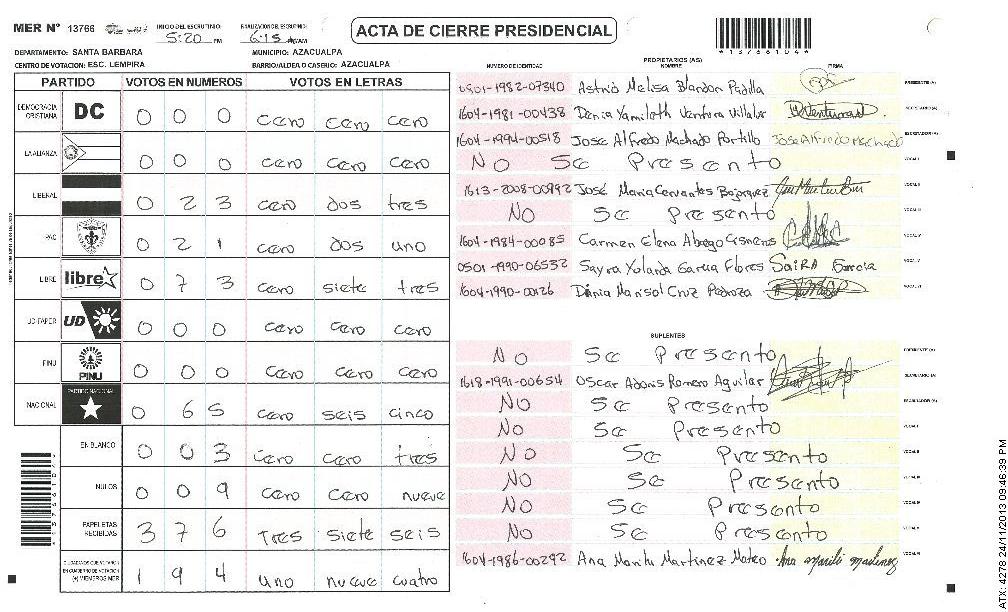 MER Nº 13766
INICIO DEL ESCRUTINIO: 5:20 PM
FINALIZACION DEL ESCRUTINIO: 6:15
ACTA DE CIERRE PRESIDENCIAL
DEPARTAMENTO: SANTA BARBARA
MUNICIPIO: AZACUALPA
CENTRO DE VOTACION: ESC. LEMPIRA
BARRIO/ALDEA O CASERIO: AZACUALPA
PARTIDO VOTOS EN NUMEROS VOTOS EN LETRAS
DEMOCRACIA CRISTIANA DC 0 0 0 cero cero cero
LA ALIANZA 0 0 0 cero cero cero
LIBERAL 0 2 3 cero dos tres
PAC 0 2 1 cero dos uno
LIBRE libre 0 7 3 cero siete tres
UD-FAPER UD 0 0 0 cero cero cero
PINU PINU 0 0 0 cero cero cero
NACIONAL PARTIDO NACIONAL 0 6 5 cero seis cinco
EN BLANCO 0 0 3 cero cero tres
NULOS 0 0 9 cero cero nueve
PAPELETAS RECIBIDAS 3 7 6 Tres siete seis
CIUDADANOS QUE VOTARON EN CUADERNO DE VOTACION (+) MIEMBROS MER 1 9 4 uno nueve cuatro
*13766104*
PROPIETARIOS (AS)
NUMERO DE IDENTIDAD NOMBRE FIRMA
0501-1982-07340 Astrid Melisa Blandon Padilla PRESIDENTE (A)
1604-1981-00438 Denia Yamileth Ventura Villalo SECRETARIO (A)
1604-1994-00518 Jose Alfredo Machado Portillo Jose Alfredo Machado ESCRUTADOR (A)
No Se Presento VOCAL I
1613-2008-00992 José Maria Cervantes Bojorquez VOCAL II
No Se Presento VOCAL III
1604-1984-00085 Carmen Elena Abrego Cisneros VOCAL IV
0501-1990-06532 Sayra Yolanda Garcia Flores SaiRA Garcia VOCAL V
1604-1990-00126 Dinia Marisol Cruz Pedroza VOCAL VI
SUPLENTES
No Se Presento PRESIDENTE (A)
1618-1991-00654 Oscar Adonis Romero Aguilar SECRETARIO (A)
No Se Presento ESCRUTADOR (A)
No Se Presento VOCAL I
No Se Presento VOCAL II
No Se Presento VOCAL III
No Se Presento VOCAL IV
No Se Presento VOCAL V
1604-1986-00292 Ana Marily Martinez Mateo Ana marili madinez VOCAL VI
ATX: 4278 24/11/2013 09:46:39 PM